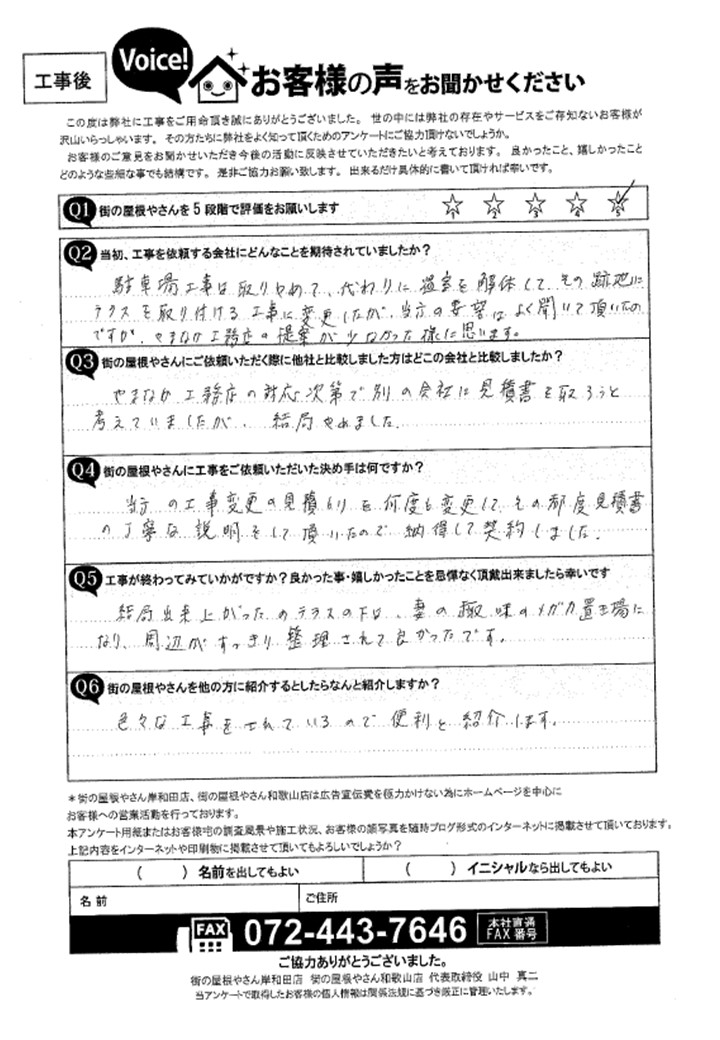 工事後
Voice!
お客様の声をお聞かせください
この度は弊社に工事をご用命頂き誠にありがとうございました。 世の中には弊社の存在やサービスをご存知ないお客様が
沢山いらっしゃいます。 その方たちに弊社をよく知って頂くためのアンケートにご協力頂けないでしょうか。
お客様のご意見をお聞かせいただき今後の活動に反映させていただきたいと考えております。 良かったこと、嬉しかったこと
どのような些細な事でも結構です。 是非ご協力お願い致します。 出来るだけ具体的に書いて頂ければ幸いです。
Q1 街の屋根やさんを5段階で評価をお願いします
1 2 3 4 5
Q2 当初、工事を依頼する会社にどんなことを期待されていましたか？
駐車場工事は取りやめて、代わりに温室を解体して、その跡地に
テラスを取り付ける工事に変更したが、当方の要望はよく聞いて頂いたの
ですが、やまなか工務店の提案が少なかった様に思います。
Q3 街の屋根やさんにご依頼いただく際に他社と比較しました方はどこの会社と比較しましたか？
やまなか工務店の対応次第で別の会社に見積書を取ろうと
考えていましたが、結局やめました。
Q4 街の屋根やさんに工事をご依頼いただいた決め手は何ですか？
当方の工事変更の見積もりを何度も変更して、その都度見積書
の丁寧な説明をして頂いたので納得して契約しました。
Q5 工事が終わってみていかがですか？良かった事・嬉しかったことを忌憚なく頂戴出来ましたら幸いです
結局出来上がったのテラスの下は、妻の趣味のメダカ置き場に
なり、周辺がすっきり整理されて良かったです。
Q6 街の屋根やさんを他の方に紹介するとしたらなんと紹介しますか？
色々な工事をされているので便利と紹介します。
＊街の屋根やさん岸和田店、街の屋根やさん和歌山店は広告宣伝費を極力かけない為にホームページを中心に
お客様への営業活動を行っております。
本アンケート用紙またはお客様宅の調査風景や施工状況、お客様の顔写真を随時ブログ形式のインターネットに掲載させて頂いております。
上記内容をインターネットや印刷物に掲載させて頂いてもよろしいでしょうか？
（　　）名前を出してもよい （　　）イニシャルなら出してもよい
名前 ご住所
FAX 072-443-7646 本社直通 FAX番号
ご協力ありがとうございました。
街の屋根やさん岸和田店 街の屋根やさん和歌山店 代表取締役 山中 真二
当アンケートで取得したお客様の個人情報は関係法規に基づき厳正に管理いたします。